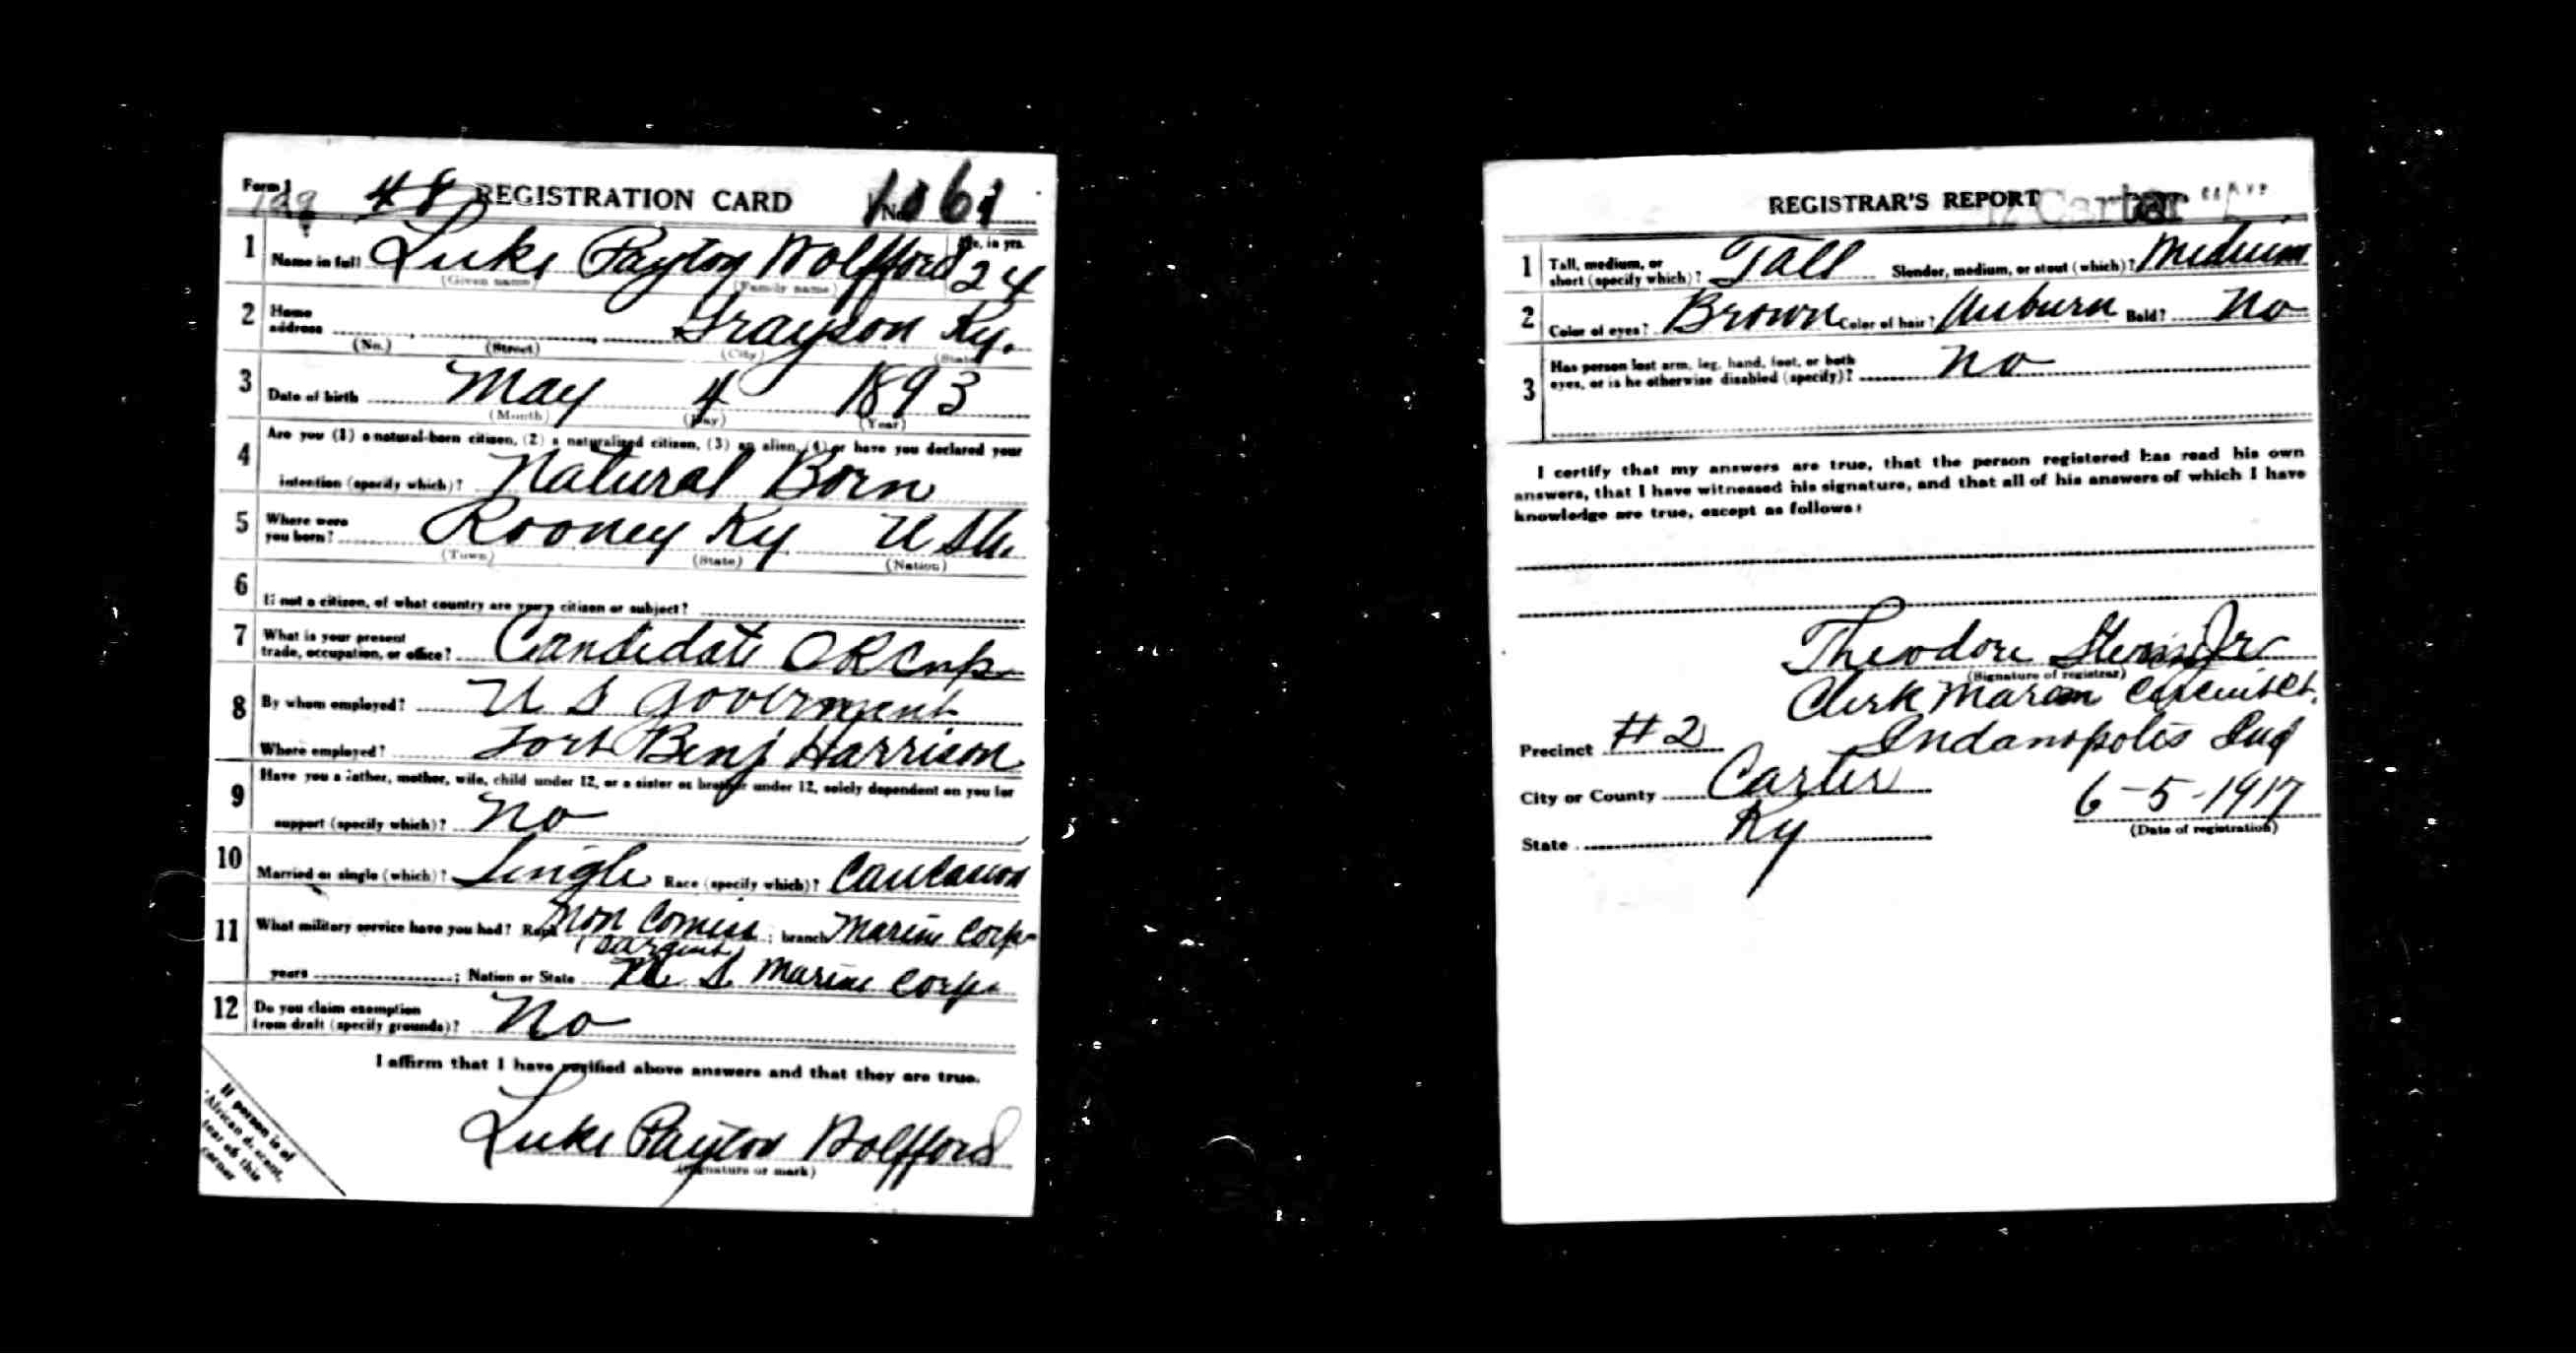 Form 1 729 48 REGISTRATION CARD No. 1061
1 Name in full Luke Payton Wolfford Age, in yrs. 24
(Given name) (Family name)
2 Home address Grayson Ky.
(No.) (Street) (City) (State)
3 Date of birth May 4 1893
(Month) (Day) (Year)
Are you (1) a natural-born citizen, (2) a naturalized citizen, (3) an alien, (4) or have you declared your
4 intention (specify which)? Natural Born
5 Where were you born? Rooney Ky USA
(Town) (State) (Nation)
6 If not a citizen, of what country are you a citizen or subject?
7 What is your present trade, occupation, or office? Candidate O R Corp
8 By whom employed? U S Goverment
Where employed? Fort Benj Harrison
9 Have you a father, mother, wife, child under 12, or a sister or brother under 12, solely dependent on you for
support (specify which)? No
10 Married or single (which)? Single Race (specify which)? Caucasion
11 What military service have you had? Rank Non Comiss ; branch Marine Corp
(Sargent)
years ; Nation or State U S Marine Corp
12 Do you claim exemption from draft (specify grounds)? No
I affirm that I have verified above answers and that they are true.
Luke Payton Wolfford
(Signature or mark)
If person is of
African descent,
tear off this
corner
REGISTRAR'S REPORT Carter "A"
1 Tall, medium, or short (specify which)? Tall Slender, medium, or stout (which)? Medium
2 Color of eyes? Brown Color of hair? Auburn Bald? No
3 Has person lost arm, leg, hand, foot, or both
eyes, or is he otherwise disabled (specify)? No
I certify that my answers are true, that the person registered has read his own
answers, that I have witnessed his signature, and that all of his answers of which I have
knowledge are true, except as follows:
Theodore Stein Jr
(Signature of registrar)
Clerk Marion Circuit Ct.
Precinct #2 Indanopolis Ind
City or County Carter 6-5-1917
State Ky (Date of registration)